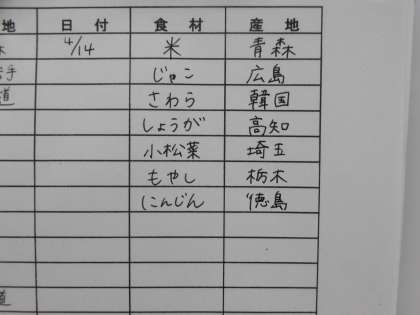 地 日付 食材 産地
4/14 米 青森
手 じゃこ 広島
道 さわら 韓国
しょうが 高知
小松菜 埼玉
もやし 栃木
にんじん 徳島
道